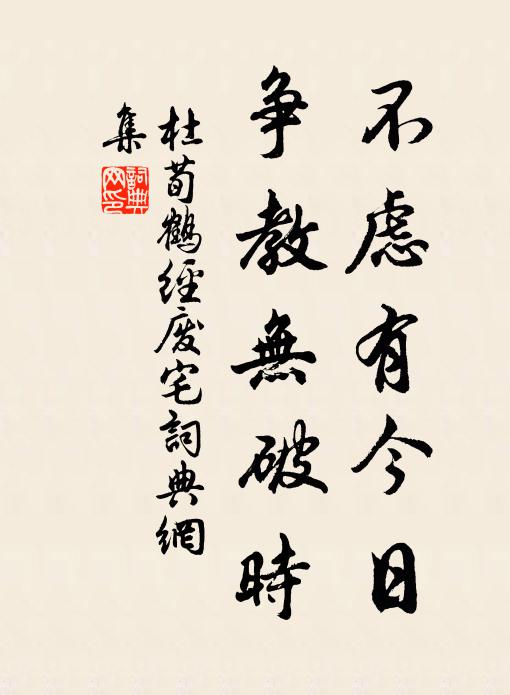 不慮有今日
争教無破時
杜荀鶴經废宅詞典網
集
詞典网印